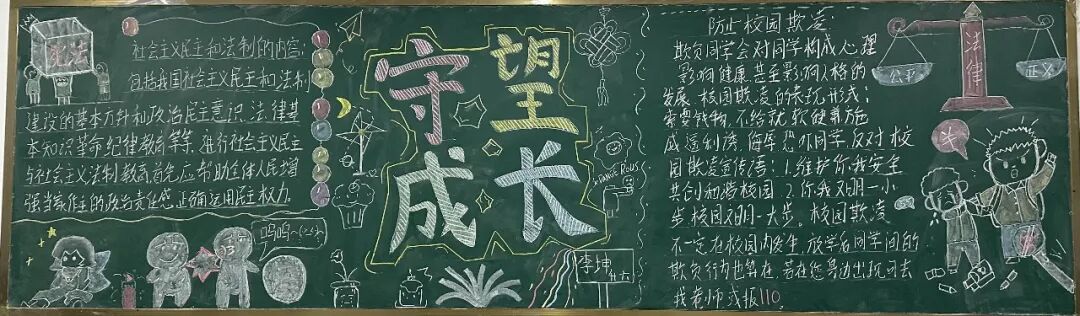 宪法
社会主义民主和法制的内容:
包括我国社会主义民主和法制
建设的基本方针和政治民主意识、法律基
本知识革命纪律教育等等、推行社会主义民主
与社会主义法制教育、首先应帮助全体人民增
强当家作主的政治责任感、正确运用民主权力。
呜呜~
守望
成长
Danie Rous
李坤
防止校园欺凌:
欺负同学会对同学构成心理
影响健康甚至影响人格的
发展、校园欺凌的表现形式:
索要钱物,不给就软硬兼施
威逼利诱、侮辱恐吓同学、反对校
园欺凌宣传语:1、维护你我安全
共创和谐校园 2、你我文明一小
步校园文明一大步。校园欺凌
不一定在校园内发生,放学后同学间的
欺负行为也算在,若在您身边出现可去
找老师或报110。
法律
公平
正义